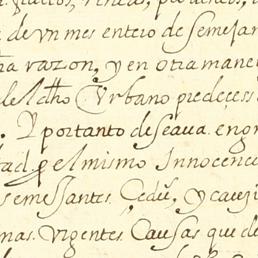 de vn mes enteio de semejan
ma razon, y en otia mane
del dho Vrbano piedecess
. Y portanto deseaua. engra
tad pel mismo Innocenci
semejantes. Cedul, y cauzi
nas. Vigentes. Causas que de